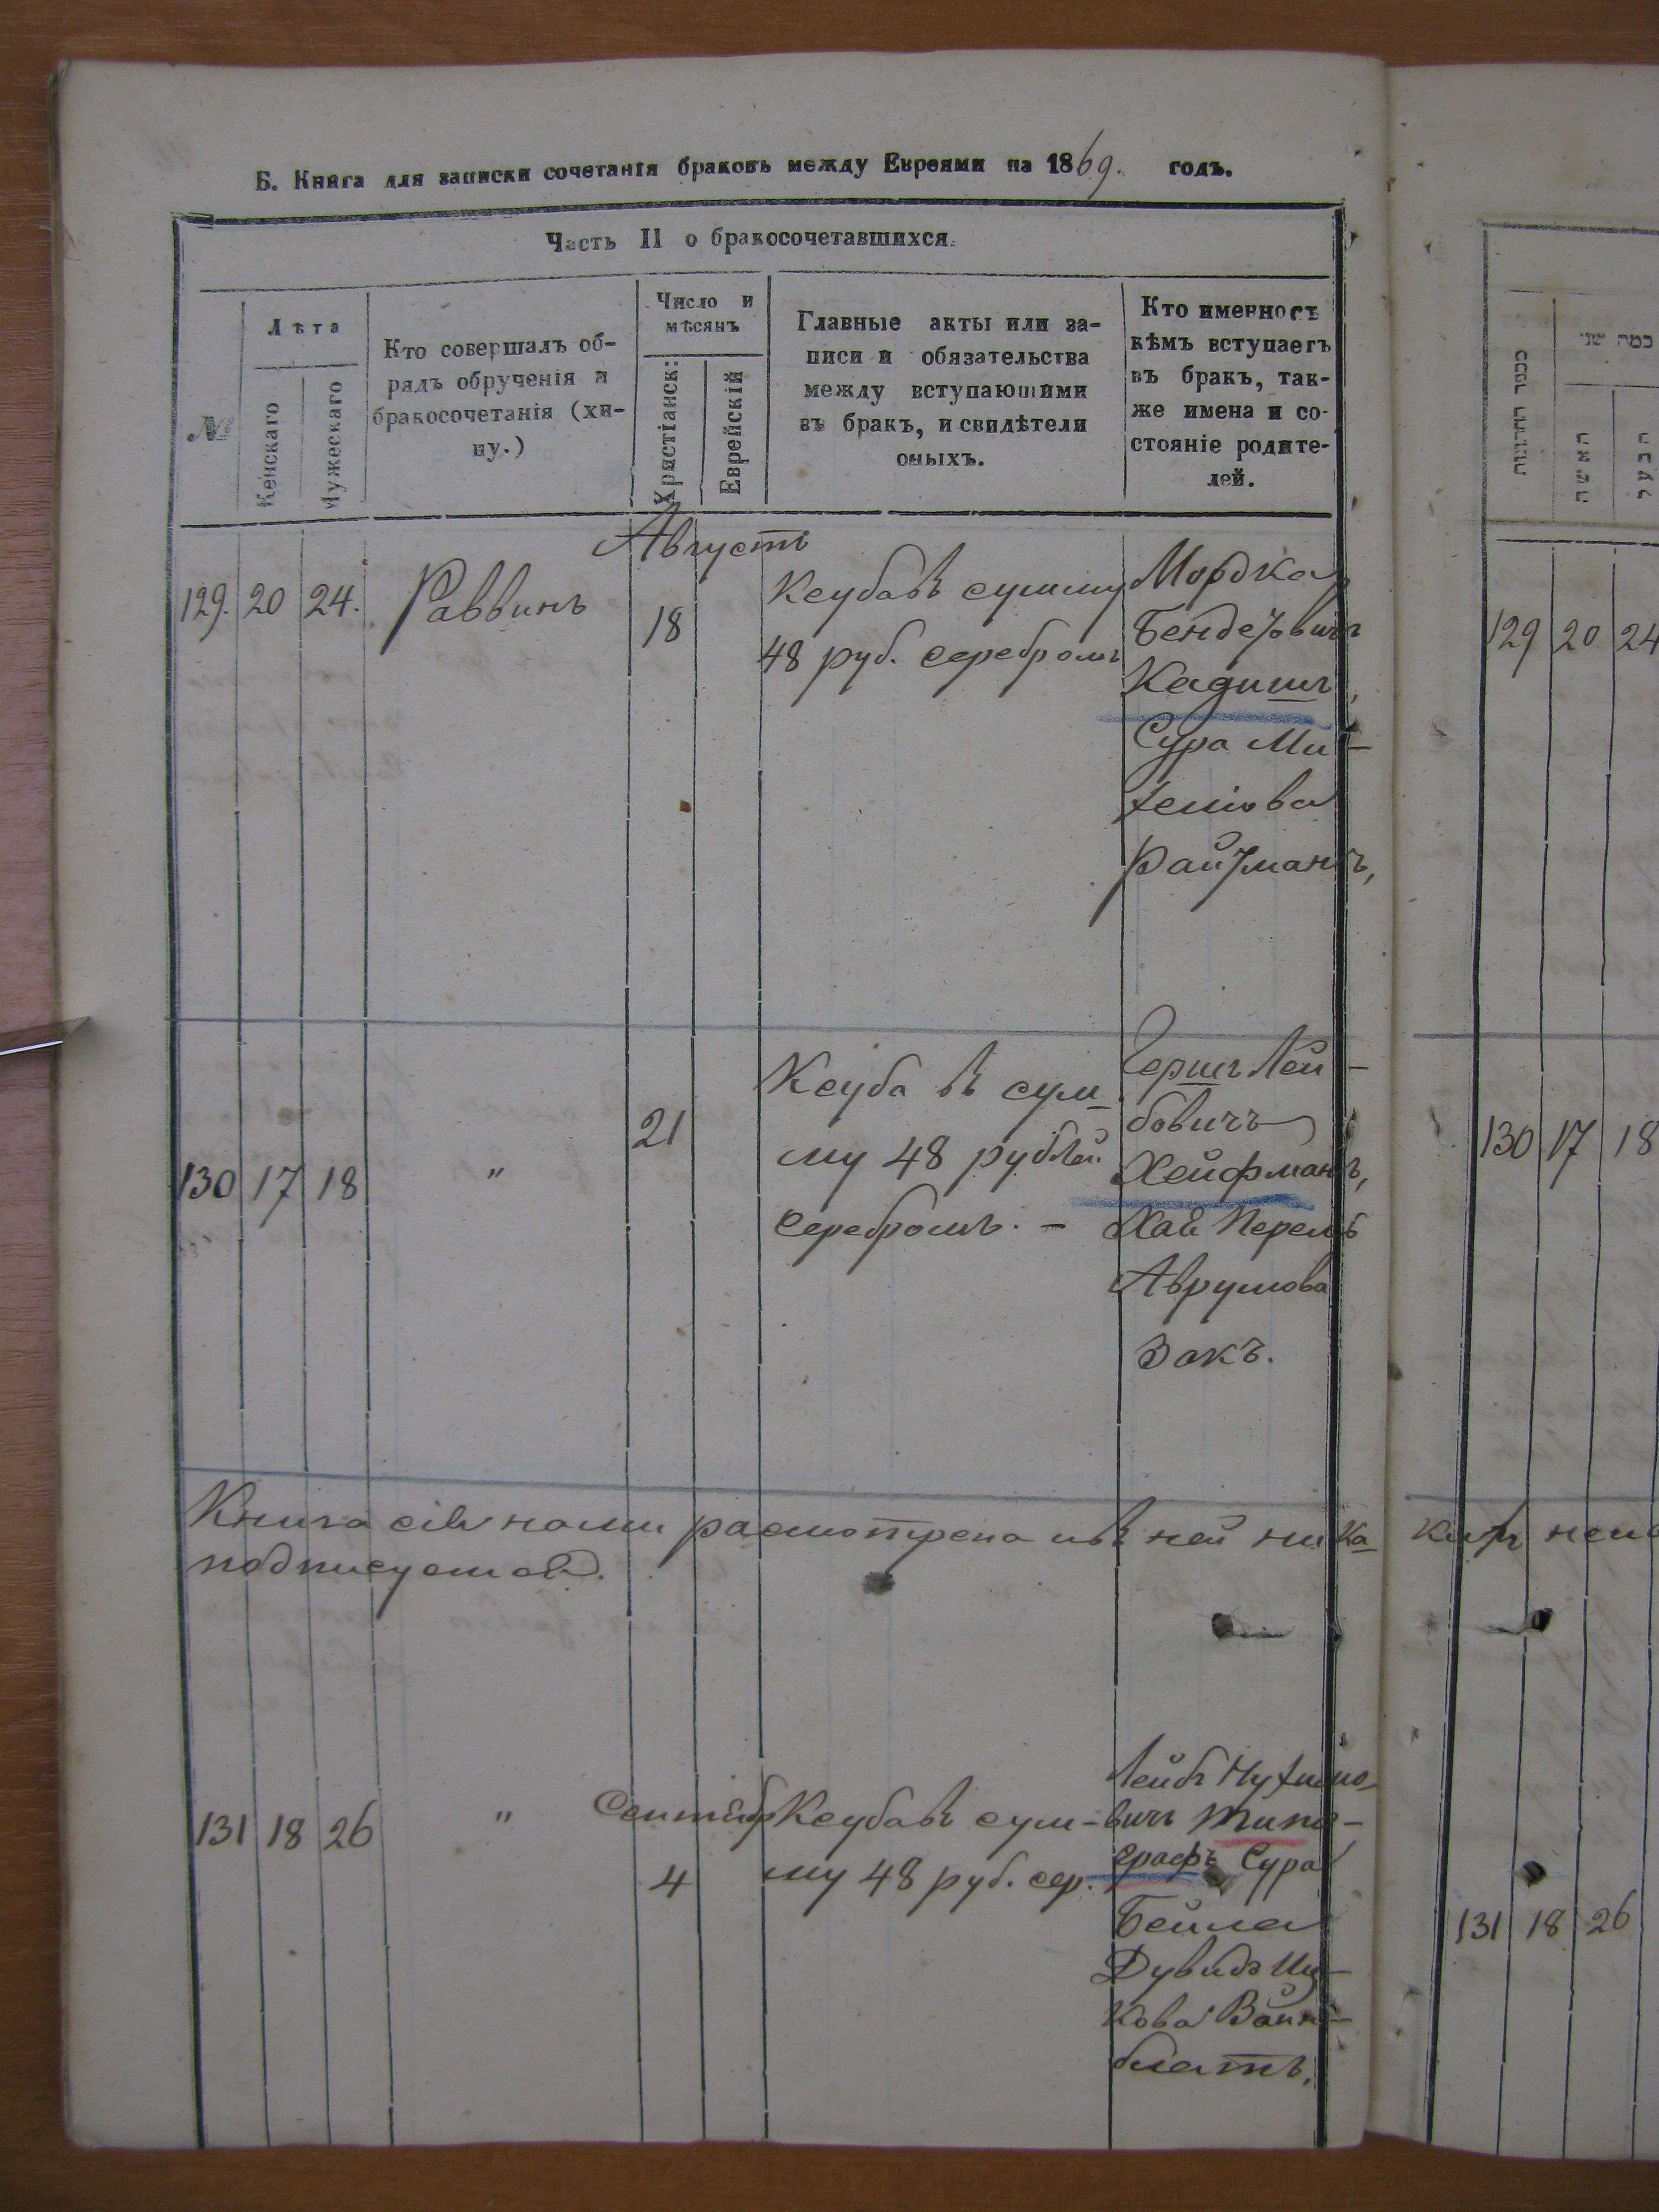 Б. Книга для записки сочетанія браковъ между Евреями на 1869. годъ.
Часть II о бракосочетавшихся.
№
Лѣта
Женскаго
Мужескаго
Кто совершалъ об-
рядъ обрученія и
бракосочетанія (ху-
пу.)
Число и
мѣсяцъ
Христіанск:
Еврейскій
Главные акты или за-
писи и обязательства
между вступающими
въ бракъ, и свидѣтели
оныхъ.
Кто именно съ
кѣмъ вступаетъ
въ бракъ, так-
же имена и со-
стояніе родите-
лей.
Августъ
129. 20 24. Раввинъ 18
Ксуба въ сумму
48 руб. серебромъ
Мордко
Бендетовичъ
Кадишъ,
Сура Ми-
хелiова
Райзманъ,
130 17 18 " 21
Ксуба въ сум-
му 48 рублей
серебромъ. –
Гершъ Лей-
бовичъ
Хейфманъ,
Хая Перель
Аврумова
Закъ.
Книга сія нами расмотрена и въ ней ника
подписуемся.
131 18 26 " Сентябр 4
Ксуба въ сум-
му 48 руб. сер.
Лейбъ Нухимо
вичъ Типо-
графъ Сура
Бейла
Дувидъ Иц-
кова Вайн-
блатъ.
מספר החתונות
כמה שני
האשה
הבעל
129 20 24
130 17 18
131 18 26